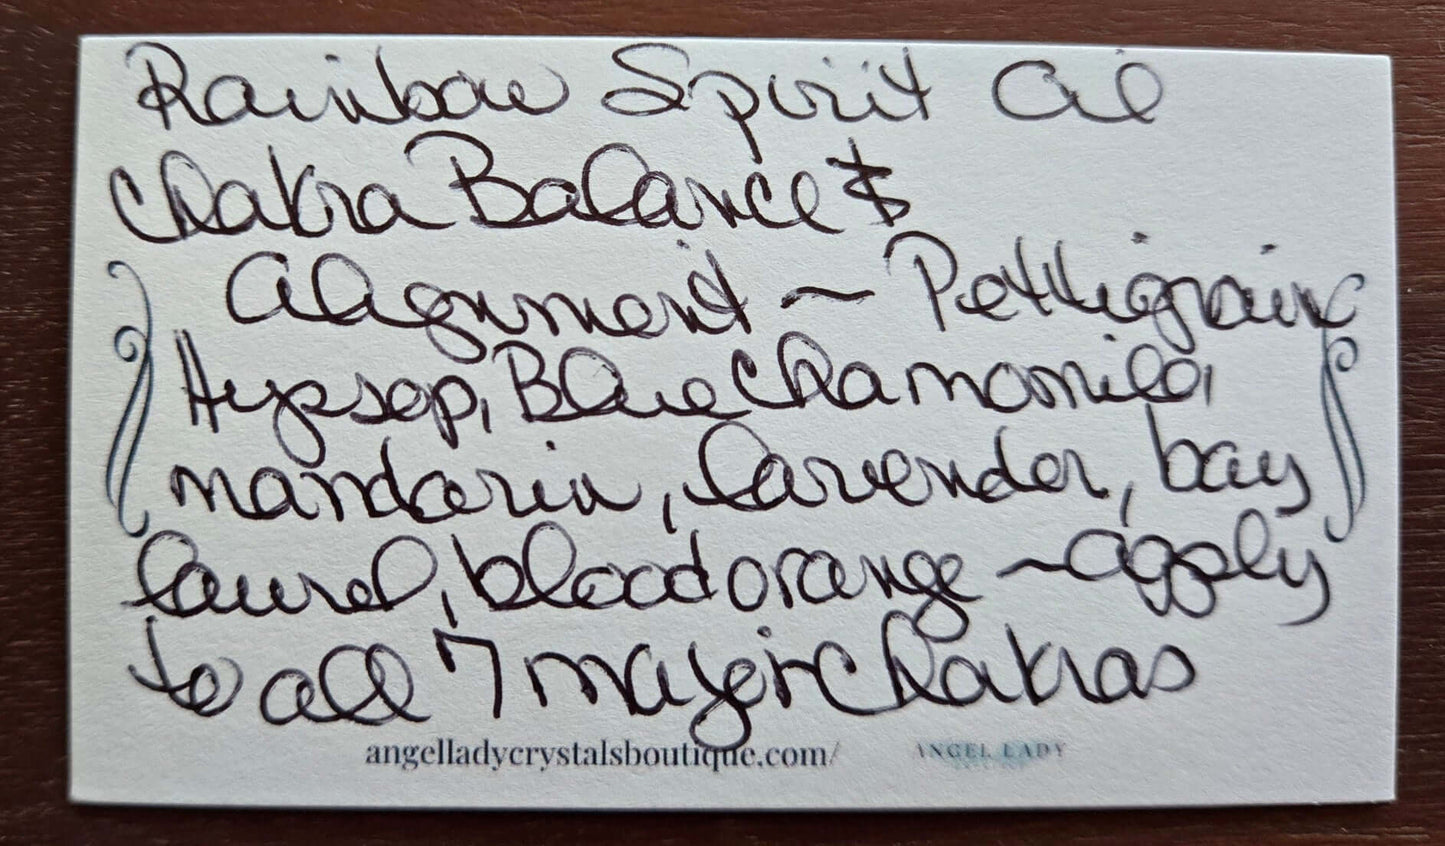 Rainbow Spirit Oil
Chakra Balance &
Alignment ~ Pettigraine
Hyssop, Blue Chamomile,
mandarin, lavender, bay
laurel, blood orange ~ apply
to all 7 major Chakras
angelladycrystalsboutique.com/
ANGEL LADY